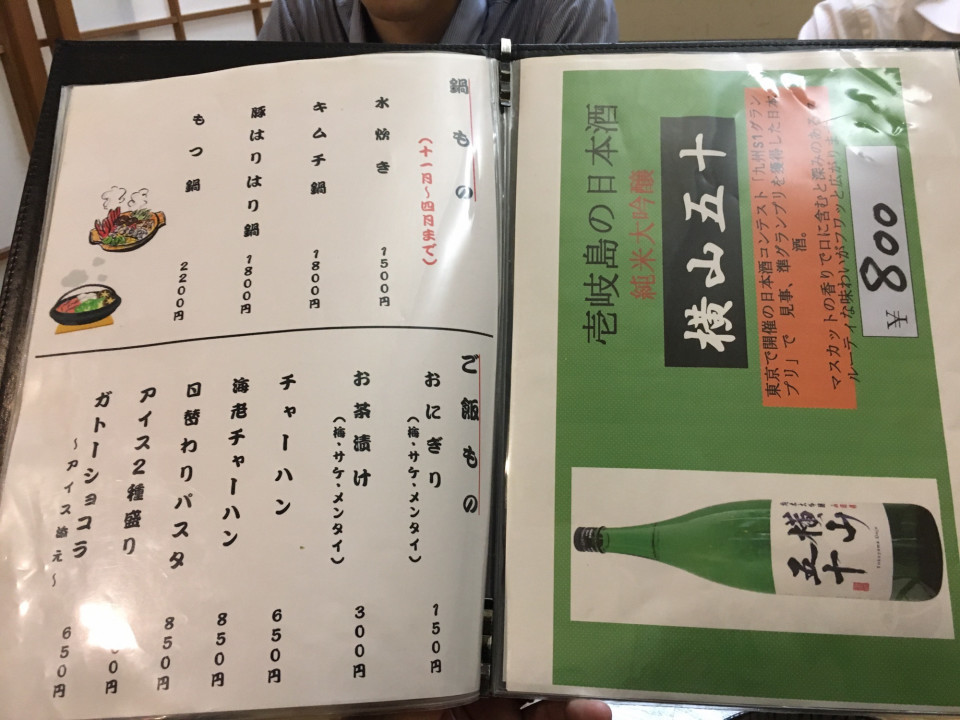 鍋もの
(十一月～四月まで)
水炊き 1500円
キムチ鍋 1800円
豚はりはり鍋 1800円
もつ鍋 2200円
ご飯もの
おにぎり 150円
(梅・サケ・メンタイ)
お茶漬け 300円
(梅・サケ・メンタイ)
チャーハン 650円
海老チャーハン 850円
日替わりパスタ 850円
アイス2種盛り 00円
ガトーショコラ 650円
～アイス添え～
壱岐島の日本酒
純米大吟醸
横山五十
東京で開催の日本酒コンテスト「九州S1グラン
プリ」で 見事、準グランプリを獲得した日本
酒。
マスカットの香りで口に含むと深みのある
ルーティな味わいがフワッと広がりま
¥800
横山
五十